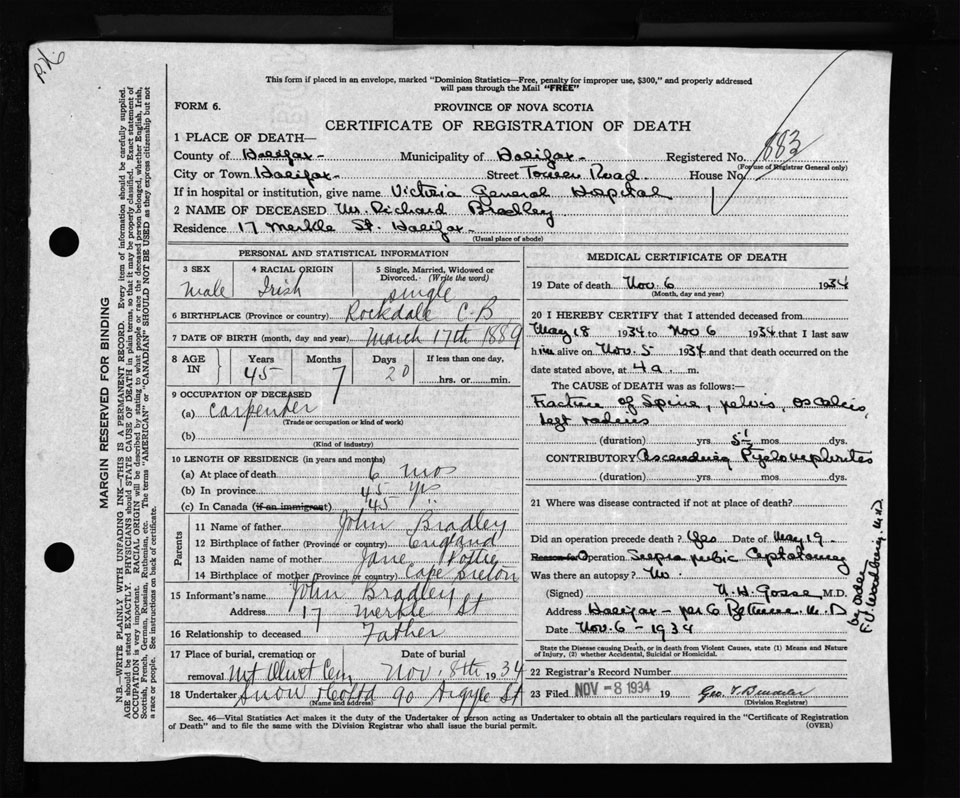 This form if placed in an envelope, marked "Dominion Statistics—Free, penalty for improper use, $300," and properly addressed
will pass through the Mail "FREE"
FORM 6.
PROVINCE OF NOVA SCOTIA
CERTIFICATE OF REGISTRATION OF DEATH
883
1 PLACE OF DEATH—
County of Halifax - Municipality of Halifax - Registered No.
(For use of Registrar General only)
City or Town Halifax - Street Tower Road House No.
If in hospital or institution, give name Victoria General Hospital
2 NAME OF DECEASED Mr. Richard Bradley
Residence 17 Merkle St. Halifax -
(Usual place of abode)
PERSONAL AND STATISTICAL INFORMATION
3 SEX
Male
4 RACIAL ORIGIN
Irish
5 Single, Married, Widowed or
Divorced. (Write the word)
single
6 BIRTHPLACE (Province or country) Rockdale C.B
7 DATE OF BIRTH (month, day and year) March 17th 1889
8 AGE IN
Years Months Days If less than one day,
45 7 20 hrs. or min.
9 OCCUPATION OF DECEASED
(a) Carpenter
(Trade or occupation or kind of work)
(b)
(Kind of industry)
10 LENGTH OF RESIDENCE (in years and months)
(a) At place of death 6 mos
(b) In province 45 yrs
(c) In Canada (if an immigrant) 45 "
Parents
11 Name of father John Bradley
12 Birthplace of father (Province or country) England
13 Maiden name of mother Jane Pottie
14 Birthplace of mother (Province or country) Cape Breton
15 Informant's name John Bradley
Address 17 Merkle St
16 Relationship to deceased Father
17 Place of burial, cremation or Date of burial
removal Mt Olivet Cem Nov 8th 1934
18 Undertaker Snow & Co Ltd 90 Argyle St
(Name and address)
MEDICAL CERTIFICATE OF DEATH
19 Date of death Nov. 6 1934
(Month, day and year)
20 I HEREBY CERTIFY that I attended deceased from
May 18 1934 to Nov 6 1934 that I last saw
him alive on Nov. 5 1934 and that death occurred on the
date stated above, at 4 a. m.
The CAUSE OF DEATH was as follows:—
Fracture of Spine, pelvis, os calcis,
left radius
(duration) yrs 5½ mos dys.
CONTRIBUTORY Ascending Pyelonephritis
(duration) yrs. mos. dys.
21 Where was disease contracted if not at place of death?
Did an operation precede death? Yes Date of May 19 -
Reason for Operation Supra pubic Cystotomy
Was there an autopsy? No.
(Signed) N. H. Gosse, M.D.
Address Halifax - per G M.D
Date Nov. 6 - 1934
by order
F.V. Woodbury, M.D.
State the Disease causing Death, or in death from Violent Causes, state (1) Means and Nature
of Injury, (2) whether Accidental, Suicidal or Homicidal.
22 Registrar's Record Number
23 Filed NOV - 8 1934 19 Geo.
(Division Registrar)
Sec. 46—Vital Statistics Act makes it the duty of the Undertaker or person acting as Undertaker to obtain all the particulars required in the "Certificate of Registration
of Death" and to file the same with the Division Registrar who shall issue the burial permit. (OVER)
MARGIN RESERVED FOR BINDING
N.B.—WRITE PLAINLY WITH UNFADING INK—THIS IS A PERMANENT RECORD. Every item of information should be carefully supplied.
AGE should be stated EXACTLY. PHYSICIANS should STATE CAUSE OF DEATH in plain terms, so that it may be properly classified. Exact statement of
OCCUPATION is very important. RACIAL ORIGIN will be described by stating to what people or race the deceased person belonged, whether English, Irish,
Scottish, French, German, Russian, Ruthenian, etc. The terms "AMERICAN" or "CANADIAN" SHOULD NOT BE USED as they express citizenship but not
a race or people. See instructions on back of certificate.